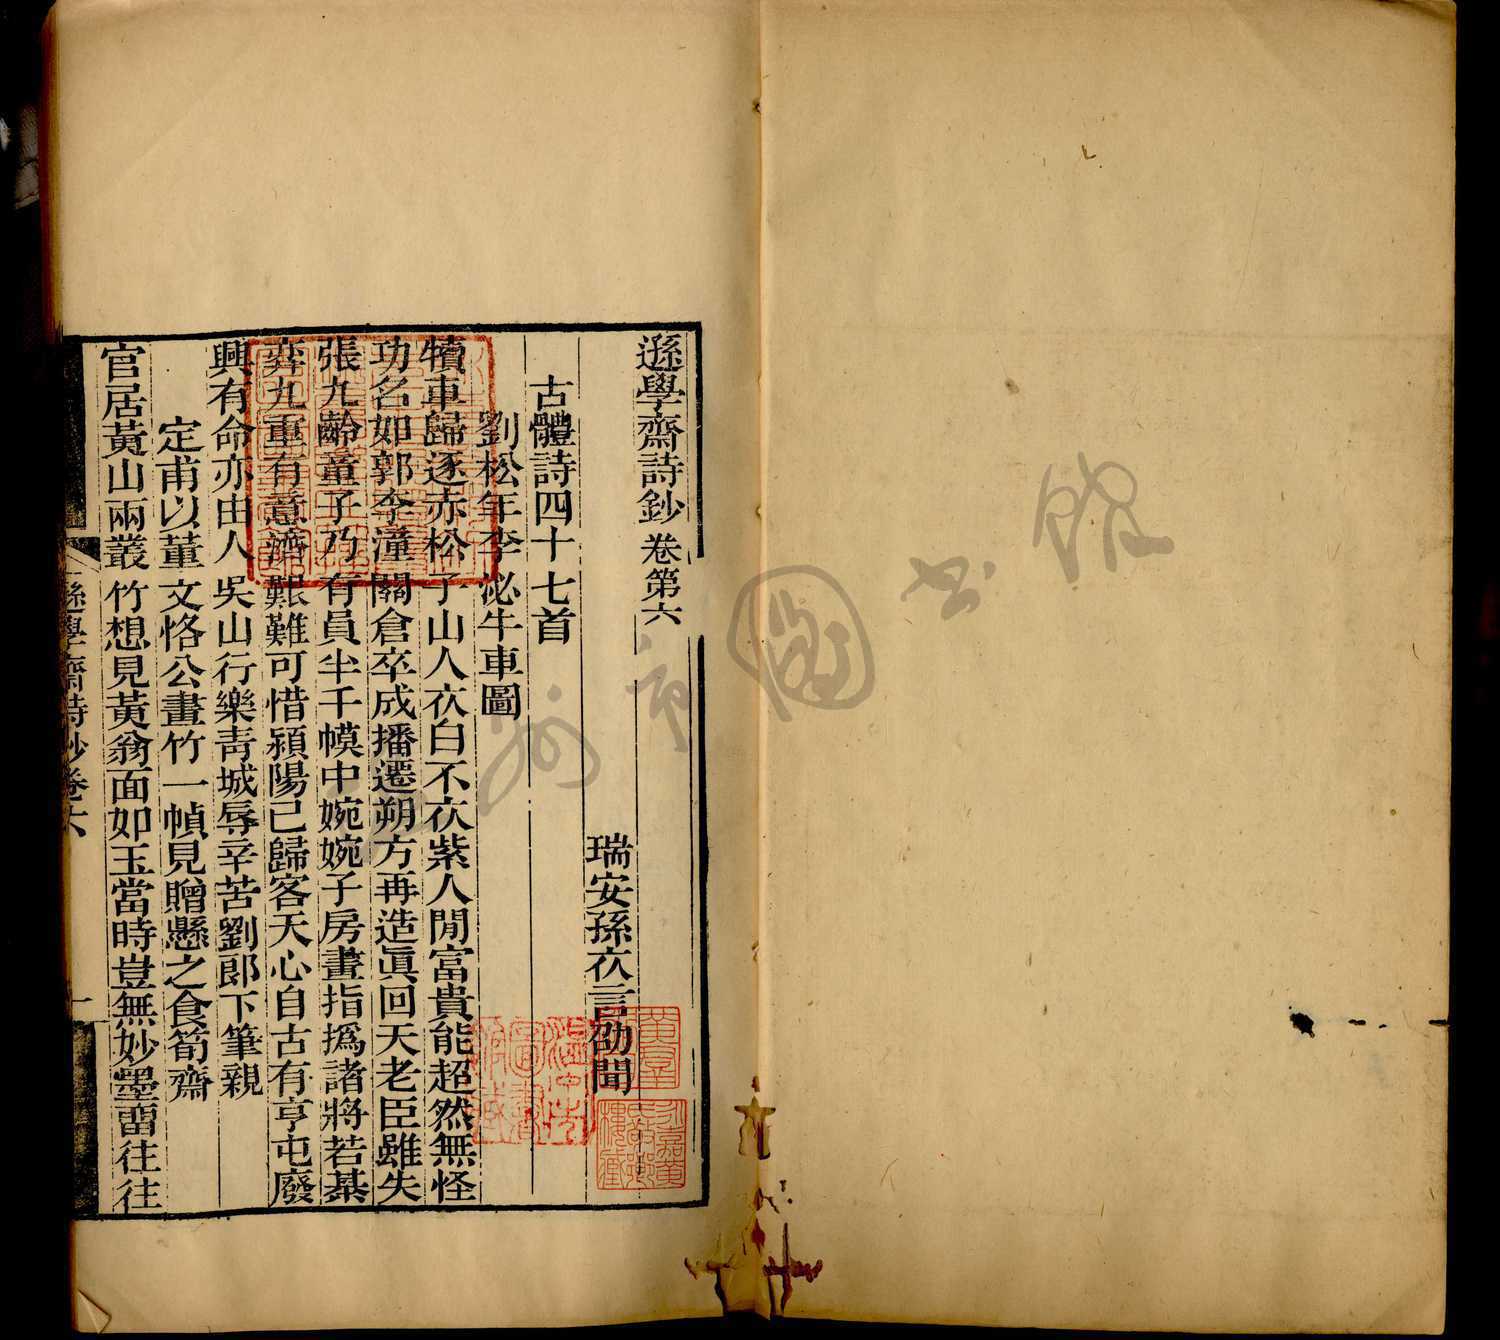 遜學齋詩鈔卷第六
瑞安孫衣言劭聞
古體詩四十七首
劉松年李泌牛車圖
犢車歸逐赤松子山人衣白不衣紫人閒富貴能超然無怪
功名如郭李潼關倉卒成播遷朔方再造眞回天老臣雖失
張九齡童子乃有員半千幙中婉婉子房畫指撝諸將若棊
弈九重有意濟艱難可惜潁陽已歸客天心自古有亨屯廢
興有命亦由人吳山行樂靑城辱辛苦劉郎下筆親
定甫以董文恪公畫竹一幀見贈懸之食筍齋
官居黃山兩叢竹想見黃翁面如玉當時豈無妙墨留往往
遜學齋詩鈔卷六
一
黃羣
永嘉黃氏敬鄉樓藏
溫州市圖書館藏
溫州市圖書館